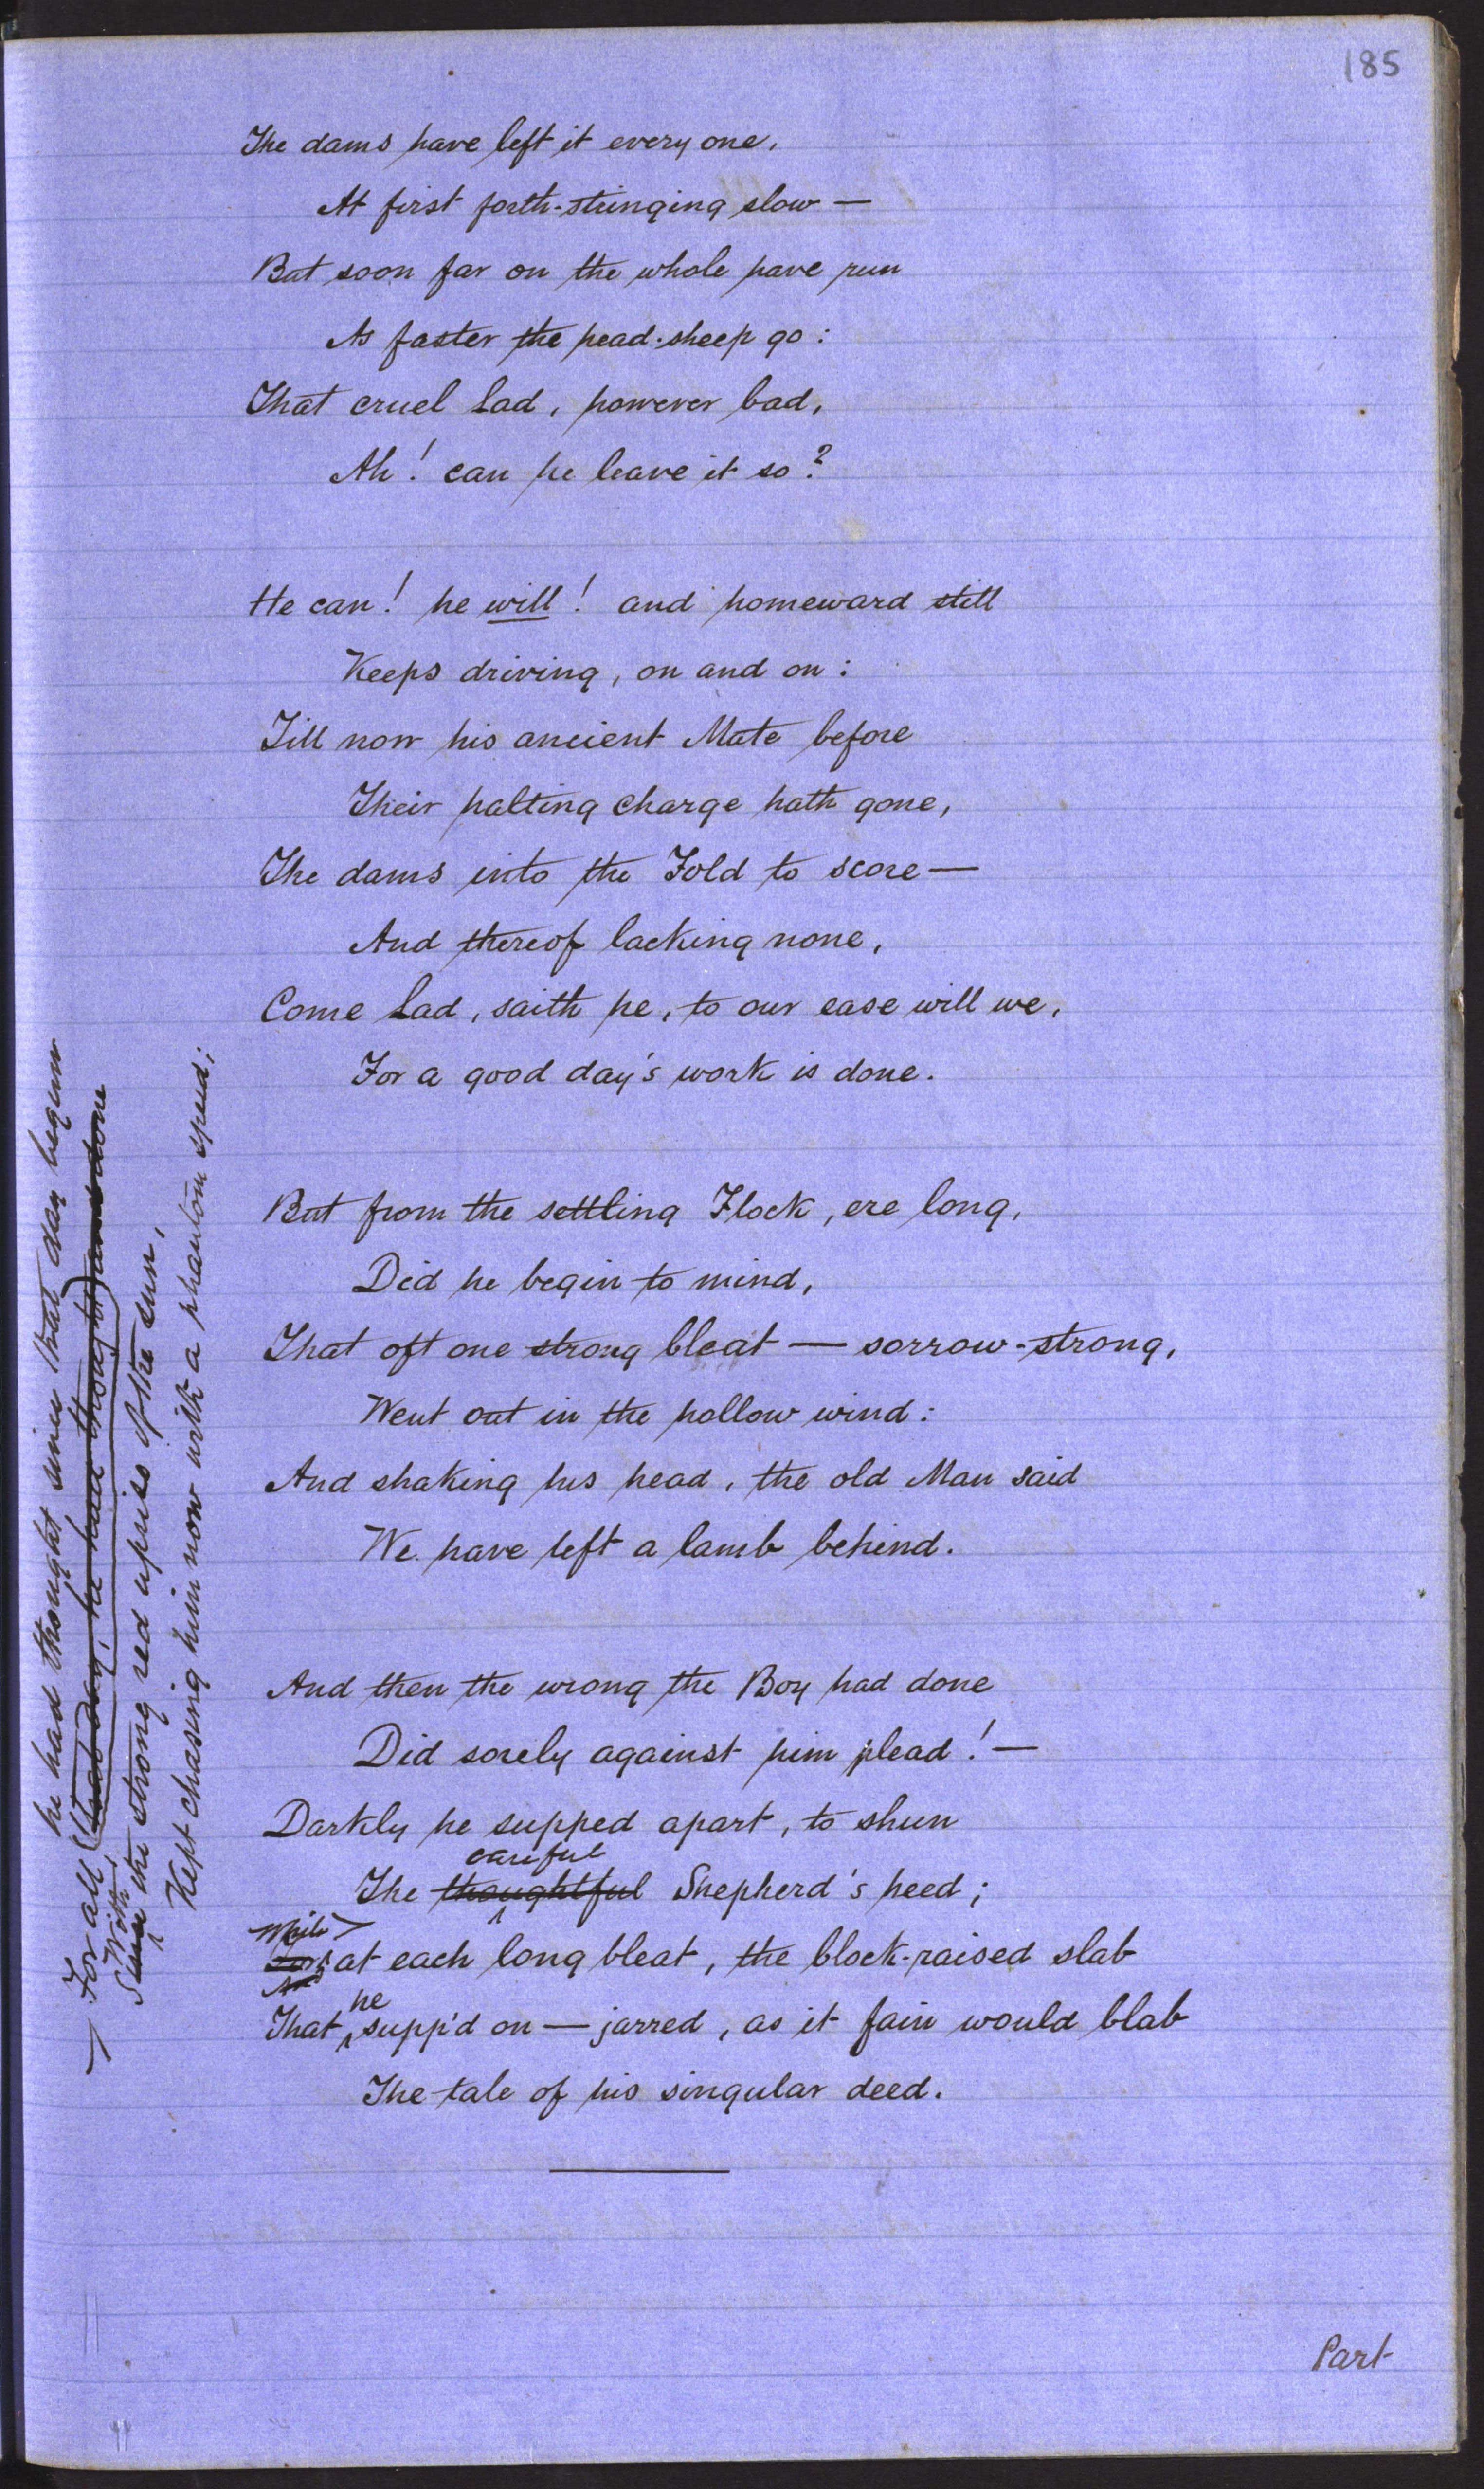 185
The dams have left it every one,
At first forth-stringing slow —
But soon far on the whole have run
As faster the head-sheep go:
That cruel Lad, however bad,
Ah! can he leave it so?
He can! he will! and homeward still
Keeps driving, on and on:
Till now his ancient Mate before
Their halting charge hath gone,
The dams into the Fold to score —
And thereof lacking none,
Come Lad, saith he, to our ease will we,
For a good day's work is done.
But from the settling Flock, ere long,
Did he begin to mind,
That oft one strong bleat — sorrow-strong,
Went out in the hollow wind:
And shaking his head, the old Man said
We have left a lamb behind.
And then the wrong the Boy had done
Did sorely against him plead! —
Darkly he supped apart, to shun
careful
The thoughtful Shepherd's heed;
While
at each long bleat, the block-raised slab
he
That supp'd on — jarred, as it fain would blab
The tale of his singular deed.
Part
he had thought since that day begun
For all (that day, he had thought) and done
With
Since the strong red uprise of the sun,
Kept chasing him now with a phantom speed;